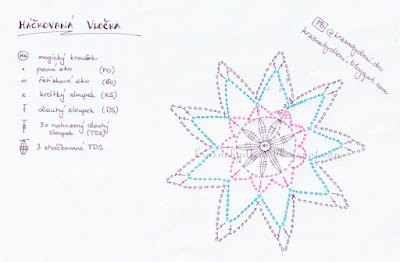 HÁČKOVANÁ VLOČKA
MK magický kroužek
pevné oko (PO)
řetízkové oko (ŘO)
x krátký sloupek (KS)
dlouhý sloupek (DS)
3x nahozený dlouhý
sloupek (TDS)
3 sháčkované TDS
MK
krasnebydleni.blogspot.com